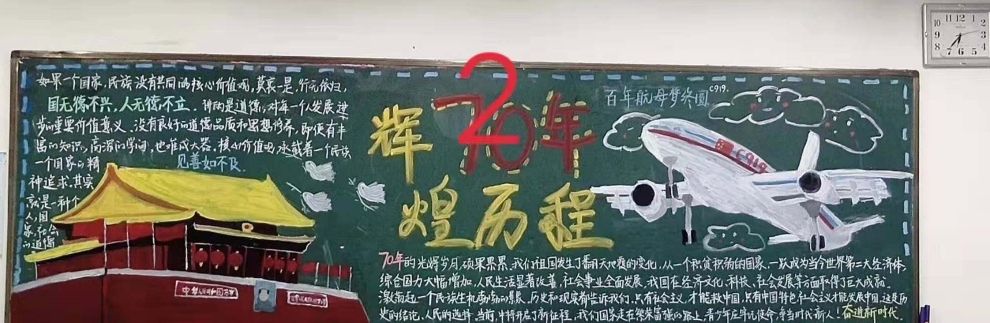 如果一个国家、民族没有共同的核心价值观,莫衷一是,行无依归,
国无德不兴,人无德不立。
对每一个人发展进
步的重要价值意义、没有良好的道德品质和思想修养,即使有丰
富的知识、高深的学问,也难成大器。核心价值观,承载着一个民族
一个国家的精
神追求,其实
就是一种个
见善如不及
辉70年
煌历程
2
百年航母梦终圆
C919.
C919
中华人民共和国万岁
70年的光辉岁月,硕果累累,我们祖国发生了翻天地覆的变化,从一个积贫积弱的国家、一跃成为当今世界第二大经济体,
综合国力大幅增加,人民生活显著改善,社会事业全面发展,我国在经济文化、科技、社会发展等方面取得了巨大成就。
激荡起一个民族生机勃勃的景象,历史和现实都告诉我们,只有社会主义才能救中国,只有中国特色社会主义才能发展中国,这是历
史的结论、人民的选择。当前,
我们国家走在繁荣富强的路上,青少年应牢记使命,争当时代新人!奋进新时代
10 11 12 1 2 3 4 5 6 7 8 9